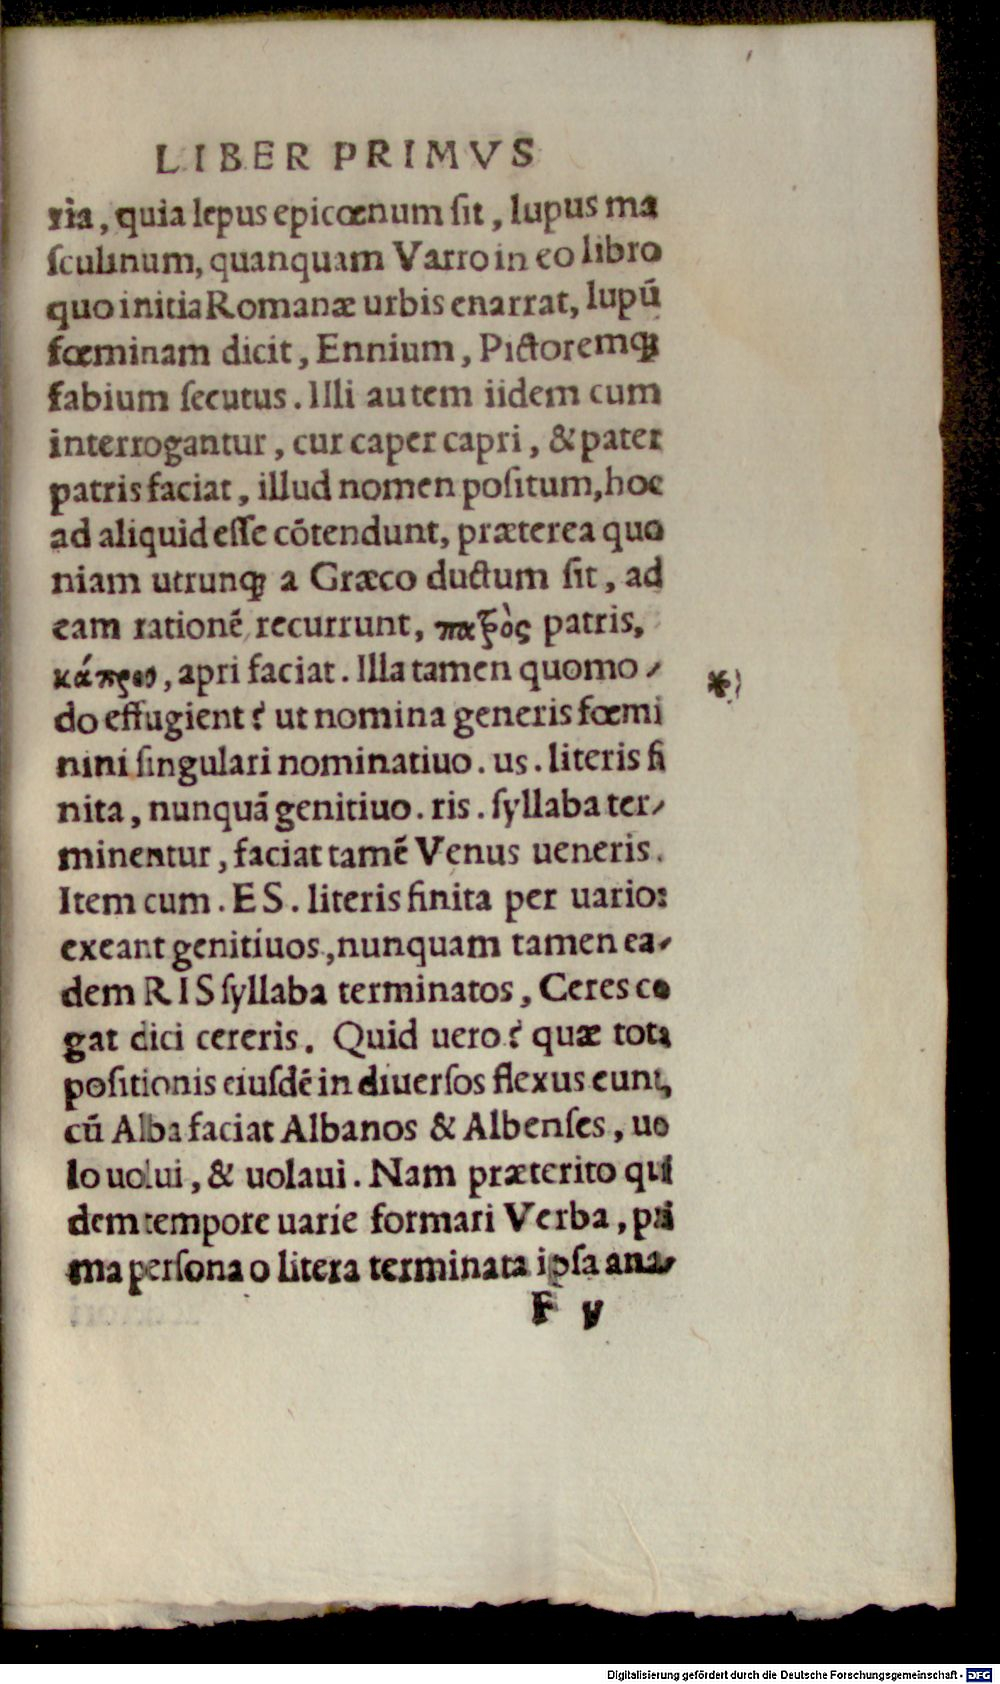 LIBER PRIMVS
ria, quia lepus epicœnum ſit, lupus ma
ſculinum, quanquam Varro in eo libro
quo initia Romanæ urbis enarrat, lupū
fœminam dicit, Ennium, Pictoremqꝫ
fabium ſecutus. Illi autem iidem cum
interrogantur, cur caper capri, & pater
patris faciat, illud nomen poſitum, hoc
ad aliquid eſſe cōtendunt, præterea quo
niam utrunqꝫ a Græco ductum ſit, ad
eam rationē recurrunt, πατρὸς patris,
κάπρου, apri faciat. Illa tamen quomo⸗
do effugient? ut nomina generis fœmi
nini ſingulari nominatiuo. us. literis fi
nita, nunquā genitiuo. ris. ſyllaba ter⸗
minentur, faciat tamē Venus ueneris.
Item cum. ES. literis finita per uarios
exeant genitiuos, nunquam tamen ea⸗
dem RIS ſyllaba terminatos, Ceres co
gat dici cereris. Quid uero? quæ tota
poſitionis eiuſdē in diuerſos flexus eunt,
cū Alba faciat Albanos & Albenſes, uo
lo uolui, & uolaui. Nam præterito qui
dem tempore uarie formari Verba, pri
ma perſona o litera terminata ipſa ana⸗
F v
*)
Digitalisierung gefördert durch die Deutsche Forschungsgemeinschaft - DFG